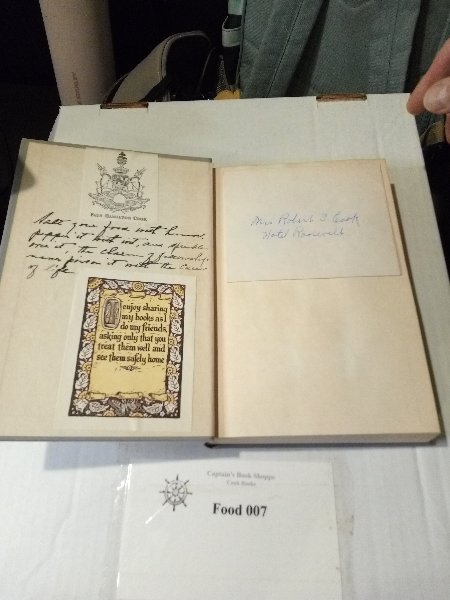 FAUN HAMILTON COOK
Salt your food with humor,
pepper it with wit, and sprinkle
over it the charm of friendship
never poison it with the cares
of life
I enjoy sharing
my books as I
do my friends,
asking only that you
treat them well and
see them safely home
Mrs Robert S Cook
Hotel Roosevelt
Captain's Book Shoppe
Cook Books
Food 007